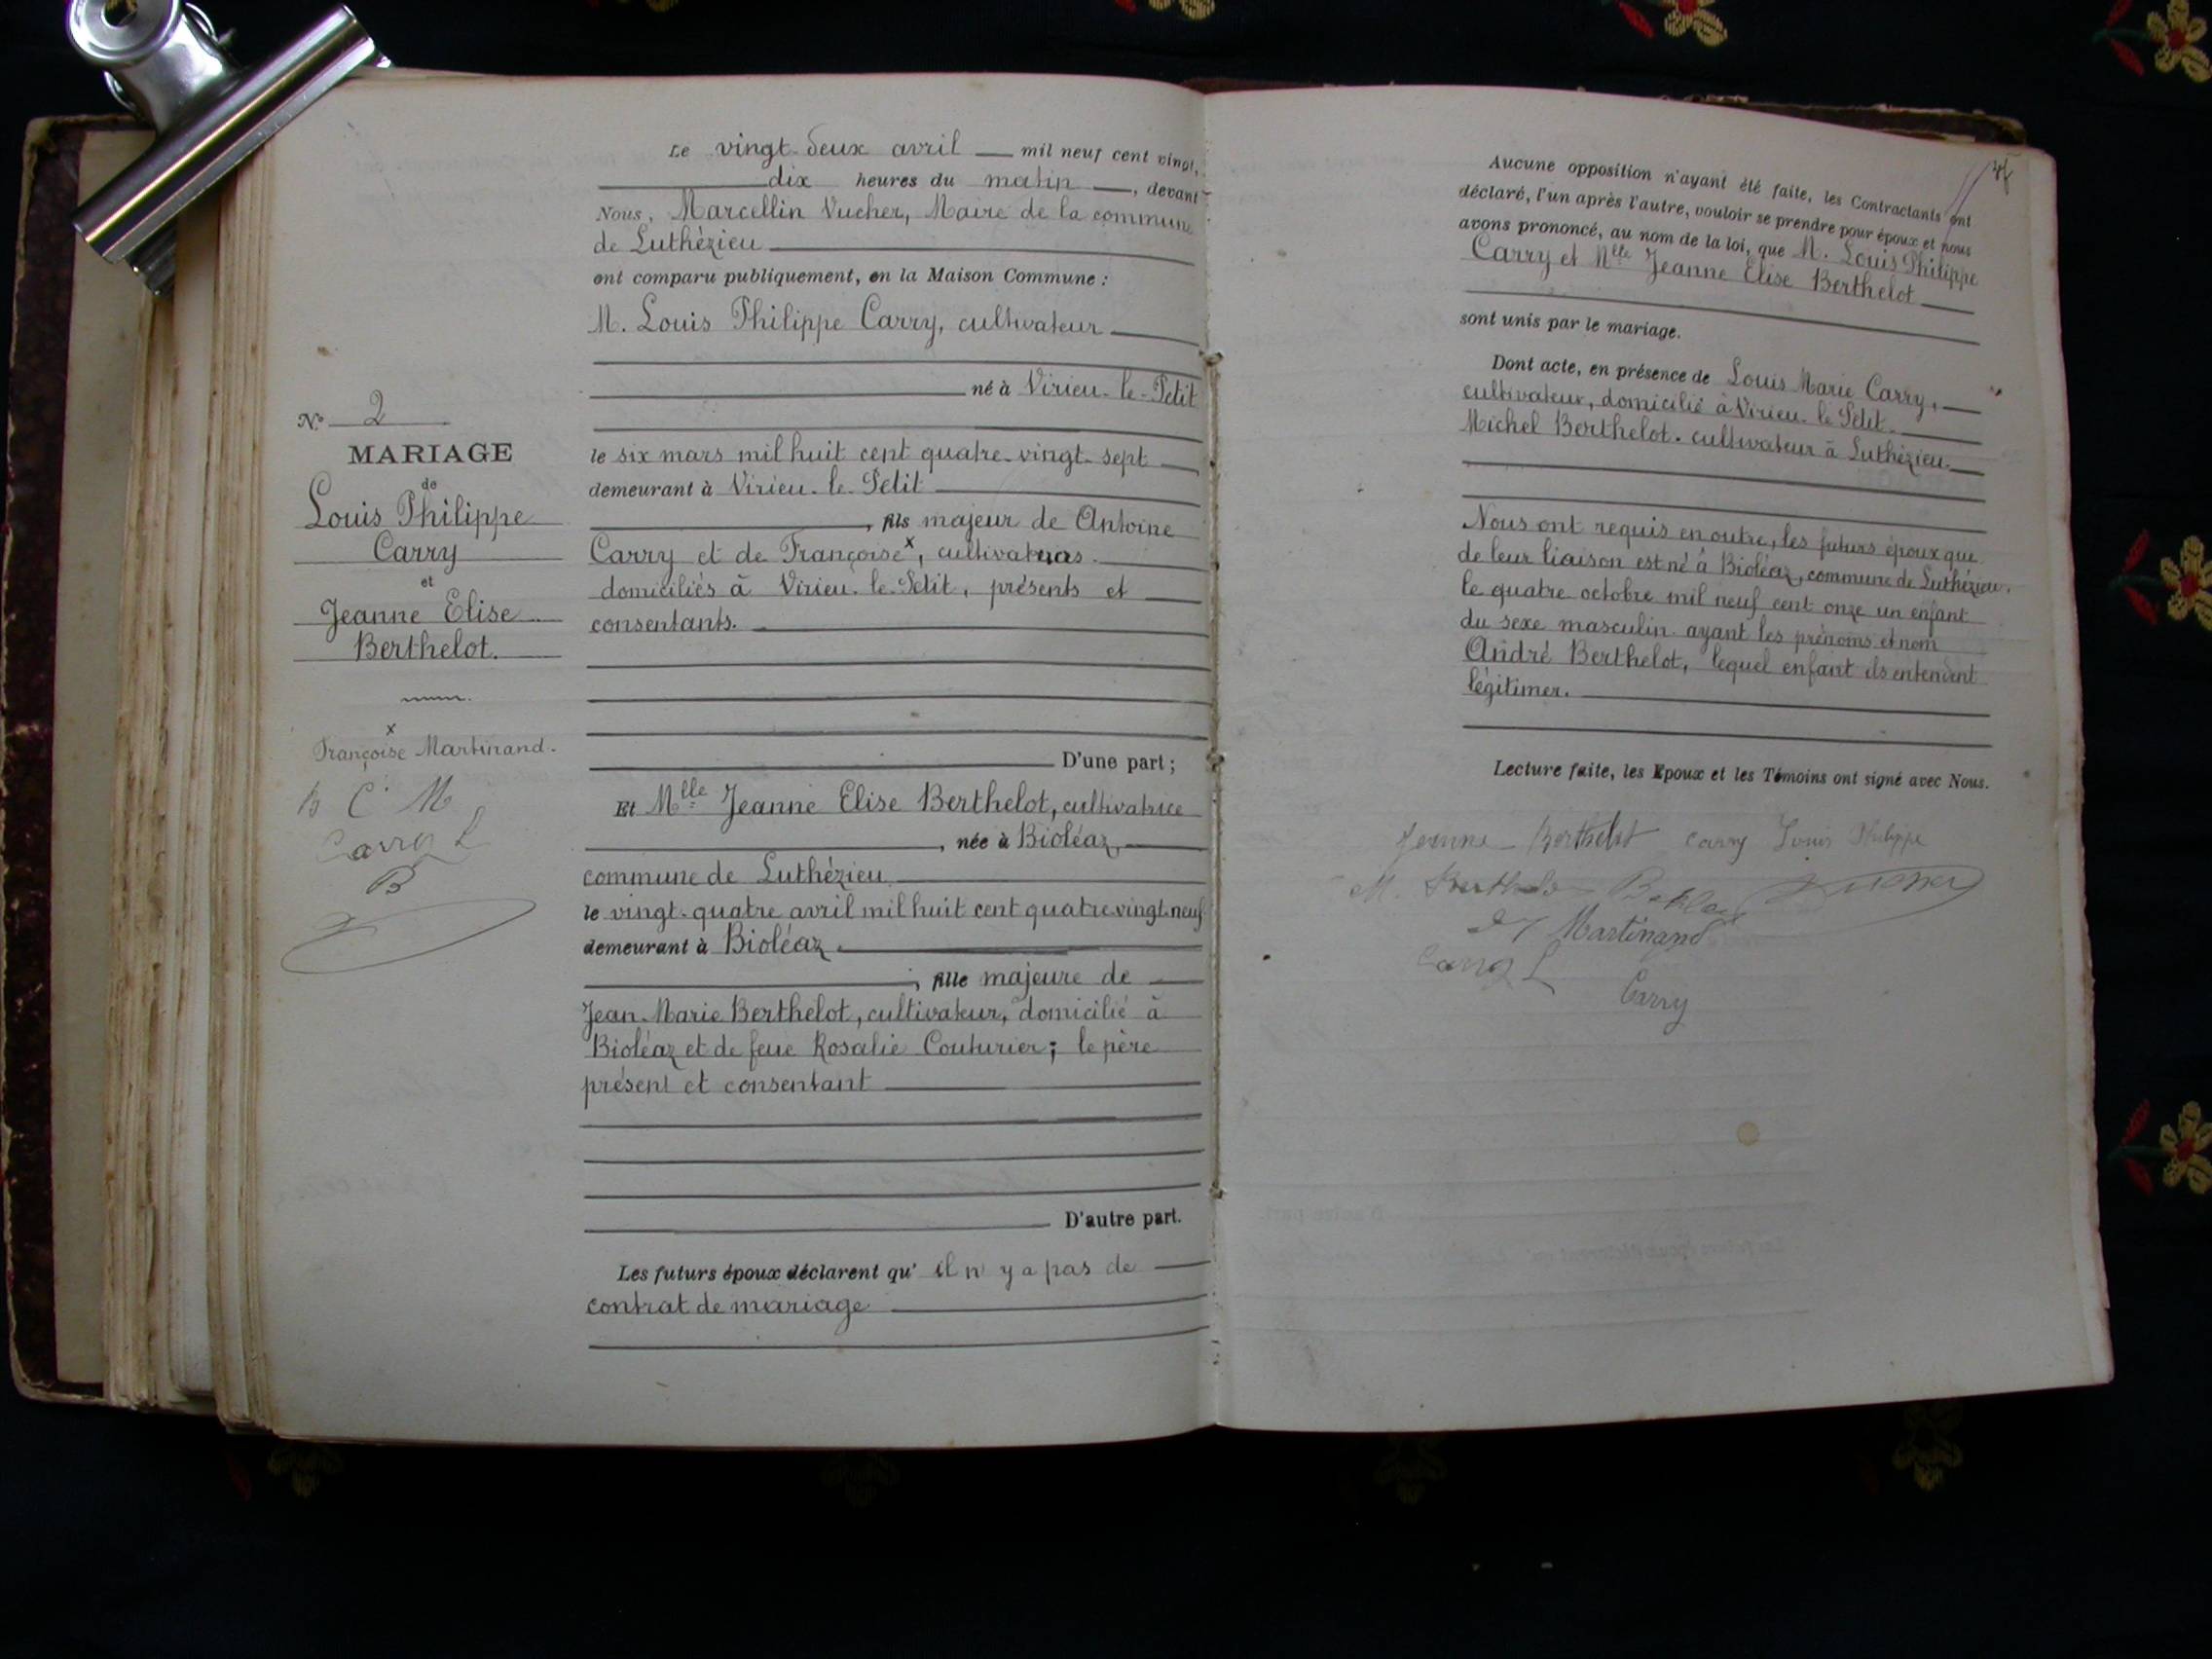 N° 2
MARIAGE
de
Louis Philippe
Carry
et
Jeanne Elise
Berthelot.
x
Françoise Martinand.
B C M
Carry L
B
Le vingt-deux avril mil neuf cent vingt,
dix heures du matin, devant
Nous, Marcellin Vucher, Maire de la commune
de Luthézieu
ont comparu publiquement, en la Maison Commune :
M. Louis Philippe Carry, cultivateur
né à Virieu-le-Petit
le six mars mil huit cent quatre-vingt-sept
demeurant à Virieu-le-Petit
, fils majeur de Antoine
Carry et de Françoise x, cultivateurs
domiciliés à Virieu-le-Petit, présents et
consentants.
D'une part ;
Et Mlle Jeanne Elise Berthelot, cultivatrice
, née à Bioléaz,
commune de Luthézieu
le vingt-quatre avril mil huit cent quatre-vingt-neuf
demeurant à Bioléaz.
, fille majeure de
Jean-Marie Berthelot, cultivateur, domicilié à
Bioléaz et de feue Rosalie Couturier ; le père
présent et consentant
D'autre part.
Les futurs époux déclarent qu' il n'y a pas de
contrat de mariage
Aucune opposition n'ayant été faite, les Contractants ont
déclaré, l'un après l'autre, vouloir se prendre pour époux et nous
avons prononcé, au nom de la loi, que M. Louis Philippe
Carry et Mlle Jeanne Elise Berthelot
sont unis par le mariage.
Dont acte, en présence de Louis Marie Carry,
cultivateur, domicilié à Virieu-le-Petit.
Michel Berthelot. cultivateur à Luthézieu.
Nous ont requis en outre, les futurs époux que
de leur liaison est né à Bioléaz, commune de Luthézieu,
le quatre octobre mil neuf cent onze un enfant
du sexe masculin ayant les prénoms et nom
André Berthelot, lequel enfant ils entendent
légitimer.
Lecture faite, les Epoux et les Témoins ont signé avec Nous.
Jeanne Berthelot Carry Louis Philippe
M. Berthelot
Martinand
Carry L
Carry